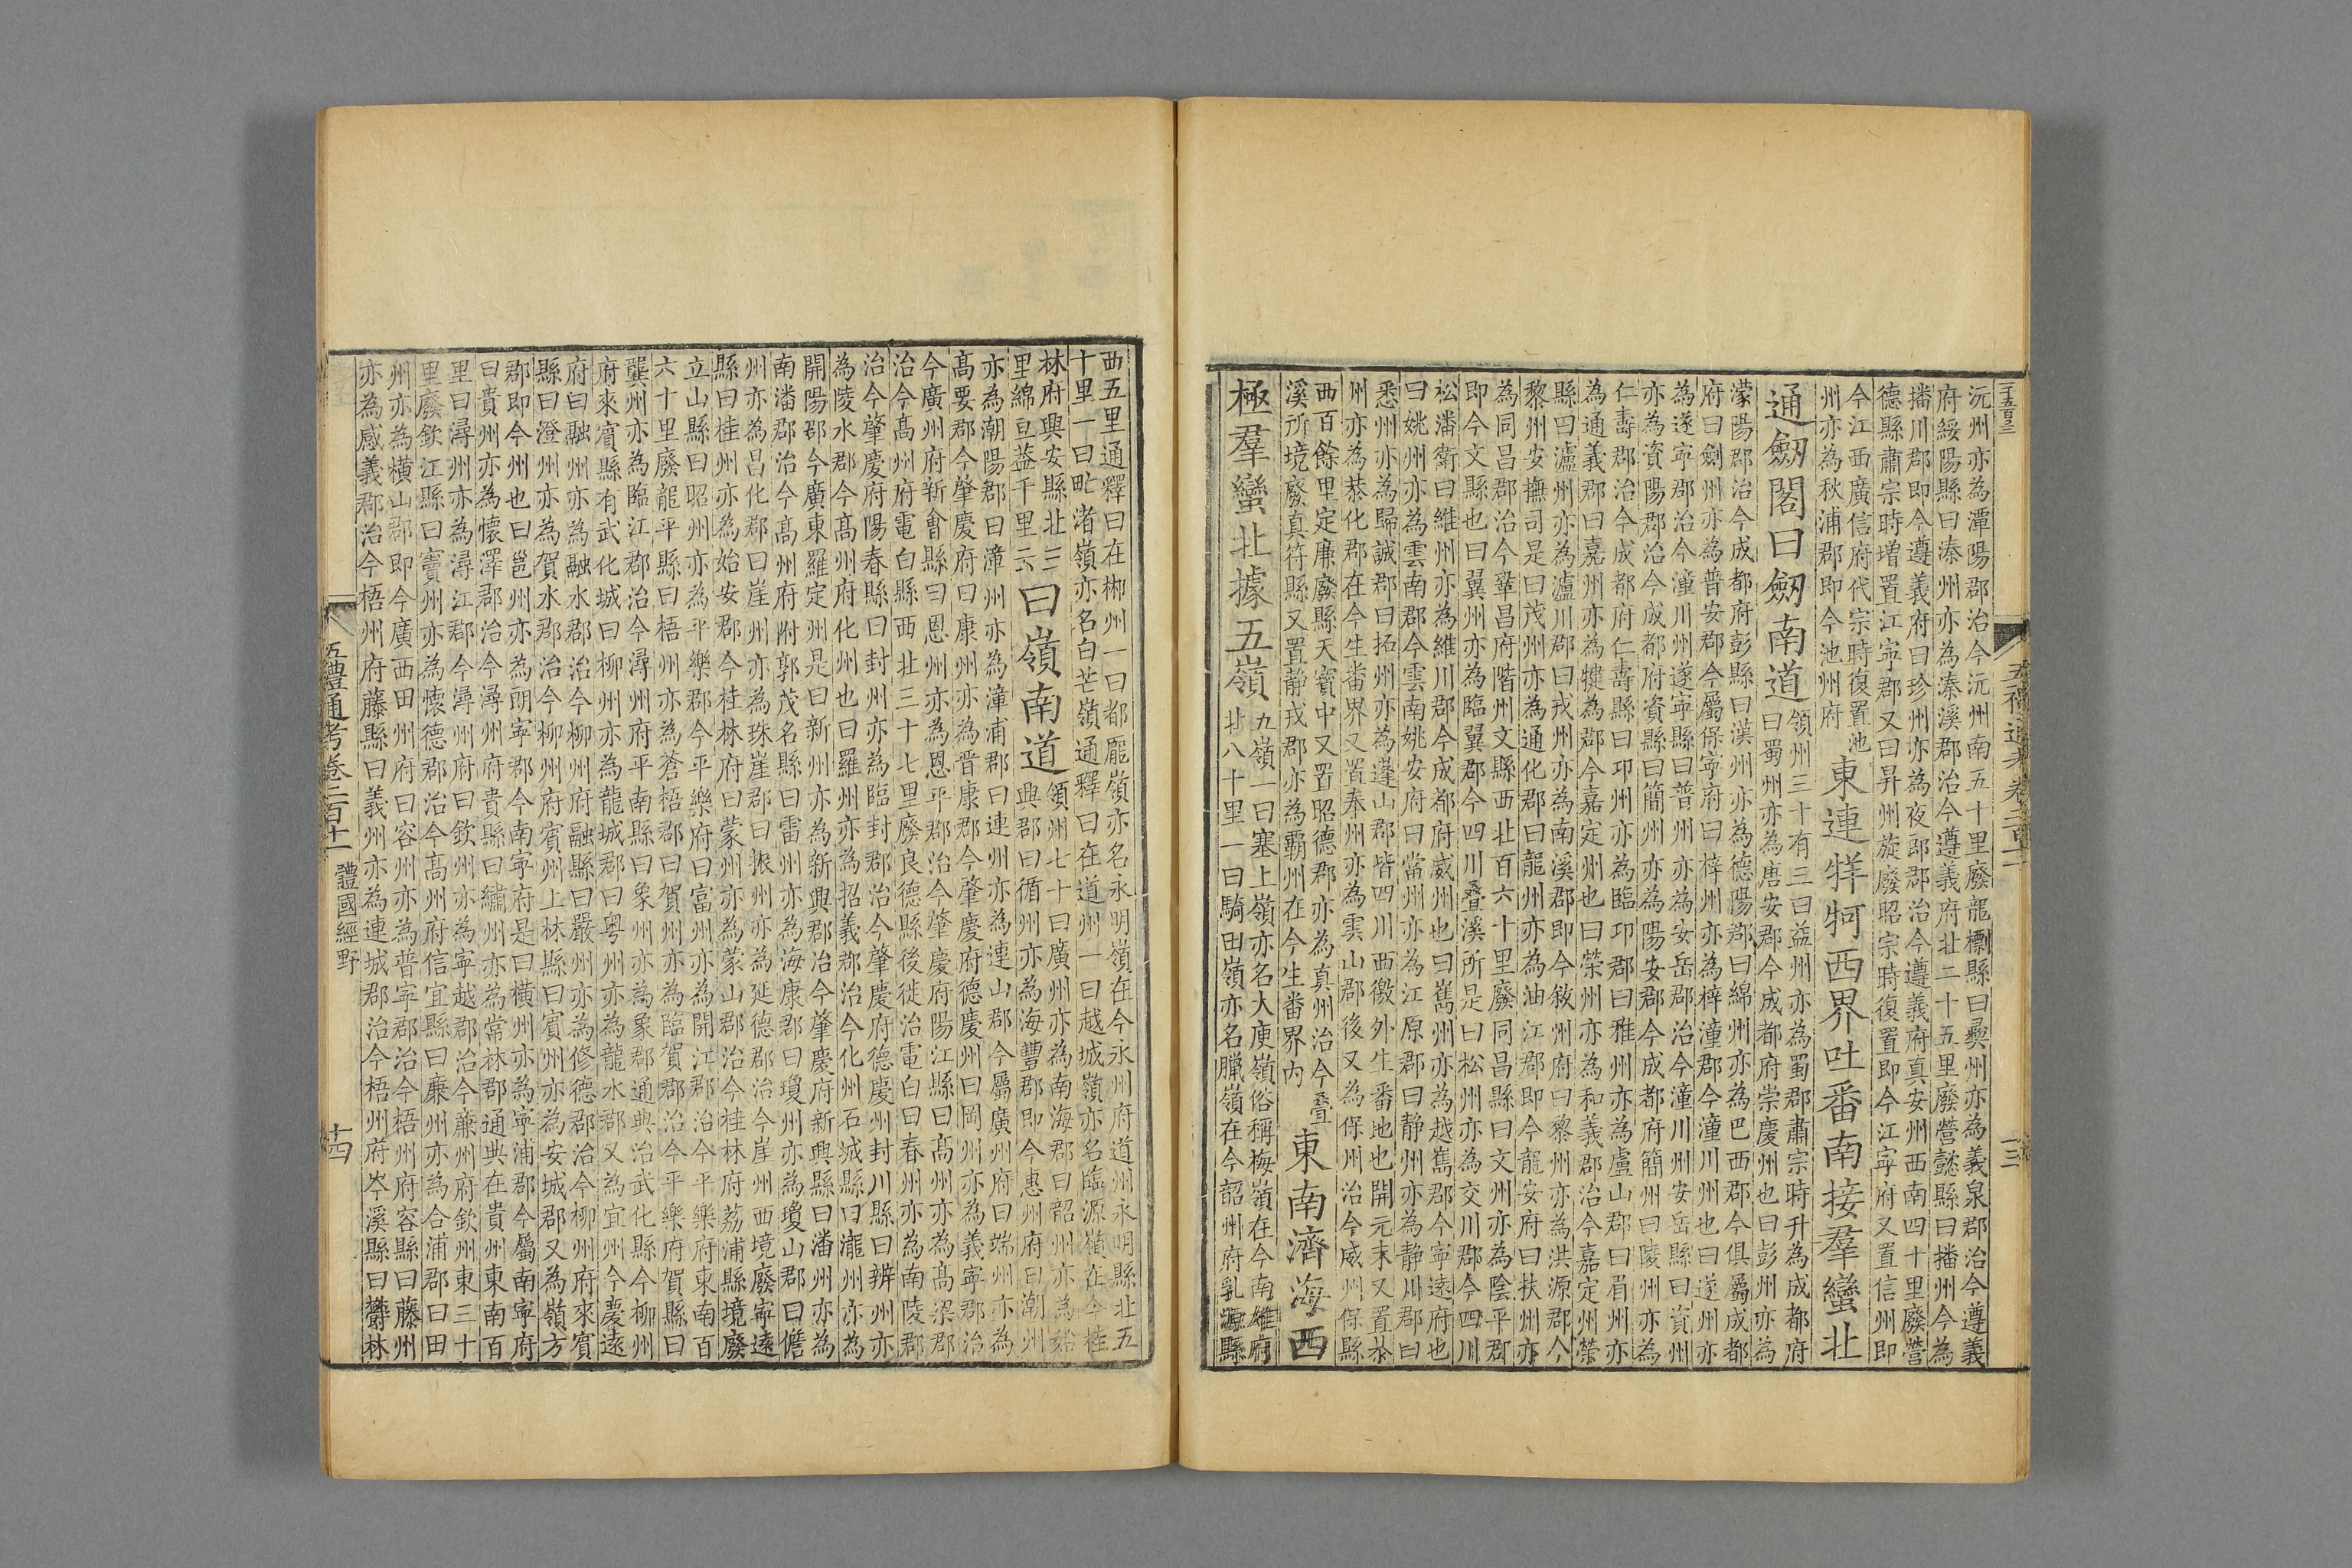 二千五百三
五禮通考卷二百十一
十三
沅州亦為潭陽郡治今沅州南五十里廢龍標縣曰獎州亦為義泉郡治今遵義
府綏陽縣曰溱州亦為溱溪郡治今遵義府北二十五里廢營懿縣曰播州今為
播川郡即今遵義府曰珍州亦為夜郎郡治今遵義府真安州西南四十里廢營
德縣肅宗時增置江寧郡又曰昇州旋廢昭宗時復置即今江寧府又置信州即
今江西廣信府代宗時復置池
州亦為秋浦郡即今池州府
東連牂牁西界吐番南接羣蠻北
通劒閣曰劒南道
領州三十有三曰益州亦為蜀郡肅宗時升為成都府
曰蜀州亦為唐安郡今成都府崇慶州也曰彭州亦為
濛陽郡治今成都府彭縣曰漢州亦為德陽郡曰綿州亦為巴西郡今俱屬成都
府曰劍州亦為普安郡今屬保寧府曰梓州亦為梓潼郡今潼川州也曰遂州亦
為遂寧郡治今潼川州遂寧縣曰普州亦為安岳郡治今潼川州安岳縣曰資州
亦為資陽郡治今成都府資縣曰簡州亦為陽安郡今成都府簡州曰陵州亦為
仁壽郡治今成都府仁壽縣曰邛州亦為臨邛郡曰雅州亦為盧山郡曰眉州亦
為通義郡曰嘉州亦為犍為郡今嘉定州也曰榮州亦為和義郡治今嘉定州榮
縣曰瀘州亦為瀘川郡曰戎州亦為南溪郡即今敘州府曰黎州亦為洪源郡今
黎州安撫司是曰茂州亦為通化郡曰龍州亦為油江郡即今龍安府曰扶州亦
為同昌郡治今鞏昌府階州文縣西北百六十里廢同昌縣曰文州亦為陰平郡
即今文縣也曰翼州亦為臨翼郡今四川叠溪所是曰松州亦為交川郡今四川
松潘衛曰維州亦為維川郡今成都府威州也曰嶲州亦為越嶲郡今寧遠府也
曰姚州亦為雲南郡今雲南姚安府曰當州亦為江原郡曰静州亦為静川郡曰
悉州亦為歸誠郡曰拓州亦為蓬山郡皆四川西徼外生番地也開元末又置恭
州亦為恭化郡在今生番界又置奉州亦為雲山郡後又為保州治今威州保縣
西百餘里定廉廢縣天寶中又置昭德郡亦為真州治今叠
溪所境廢真符縣又置静戎郡亦為霸州在今生番界內
東南濟海西
極羣蠻北據五嶺
九嶺一曰塞上嶺亦名大庾嶺俗稱梅嶺在今南雄府
北八十里一曰騎田嶺亦名臘嶺在今韶州府乳源縣
西五里通釋曰在郴州一曰都龐嶺亦名永明嶺在今永州府道州永明縣北五
十里一曰甿渚嶺亦名白芒嶺通釋曰在道州一曰越城嶺亦名臨源嶺在今桂
林府興安縣北三
里綿亘葢千里云
曰嶺南道
領州七十曰廣州亦為南海郡曰韶州亦為始
興郡曰循州亦為海豐郡即今惠州府曰潮州
亦為潮陽郡曰漳州亦為漳浦郡曰連州亦為連山郡今屬廣州府曰端州亦為
高要郡今肇慶府曰康州亦為晋康郡今肇慶府德慶州曰岡州亦為義寧郡治
今廣州府新會縣曰恩州亦為恩平郡治今肇慶府陽江縣曰高州亦為高梁郡
治今高州府電白縣西北三十七里廢良德縣後徙治電白曰春州亦為南陵郡
治今肇慶府陽春縣曰封州亦為臨封郡治今肇慶府德慶州封川縣曰辨州亦
為陵水郡今高州府化州也曰羅州亦為招義郡治今化州石城縣曰瀧州亦為
開陽郡今廣東羅定州是曰新州亦為新興郡治今肇慶府新興縣曰潘州亦為
南潘郡治今高州府附郭茂名縣曰雷州亦為海康郡曰瓊州亦為瓊山郡曰儋
州亦為昌化郡曰崖州亦為珠崖郡曰振州亦為延德郡治今崖州西境廢寧遠
縣曰桂州亦為始安郡今桂林府曰蒙州亦為蒙山郡治今桂林府荔浦縣境廢
立山縣曰昭州亦為平樂郡今平樂府曰富州亦為開江郡治今平樂府東南百
六十里廢龍平縣曰梧州亦為蒼梧郡曰賀州亦為臨賀郡治今平樂府賀縣曰
龔州亦為臨江郡治今潯州府平南縣曰象州亦為象郡通典治武化縣今柳州
府來賓縣有武化城曰柳州亦為龍城郡曰粤州亦為龍水郡又為宜州今慶遠
府曰融州亦為融水郡治今柳州府融縣曰嚴州亦為修德郡治今柳州府來賓
縣曰澄州亦為賀水郡治今柳州府賓州上林縣曰賓州亦為安城郡又為嶺方
郡即今州也曰邕州亦為朗寧郡今南寧府是曰橫州亦為寧浦郡今屬南寧府
曰貴州亦為懷澤郡治今潯州府貴縣曰繡州亦為常林郡通典在貴州東南百
里曰潯州亦為潯江郡今潯州府曰欽州亦為寧越郡治今亷州府欽州東三十
里廢欽江縣曰竇州亦為懷德郡治今高州府信宜縣曰廉州亦為合浦郡曰田
州亦為橫山郡即今廣西田州府曰容州亦為普寧郡治今梧州府容縣曰藤州
亦為感義郡治今梧州府藤縣曰義州亦為連城郡治今梧州府岑溪縣曰欝林
五禮通考卷二百十一
體國經野
十四